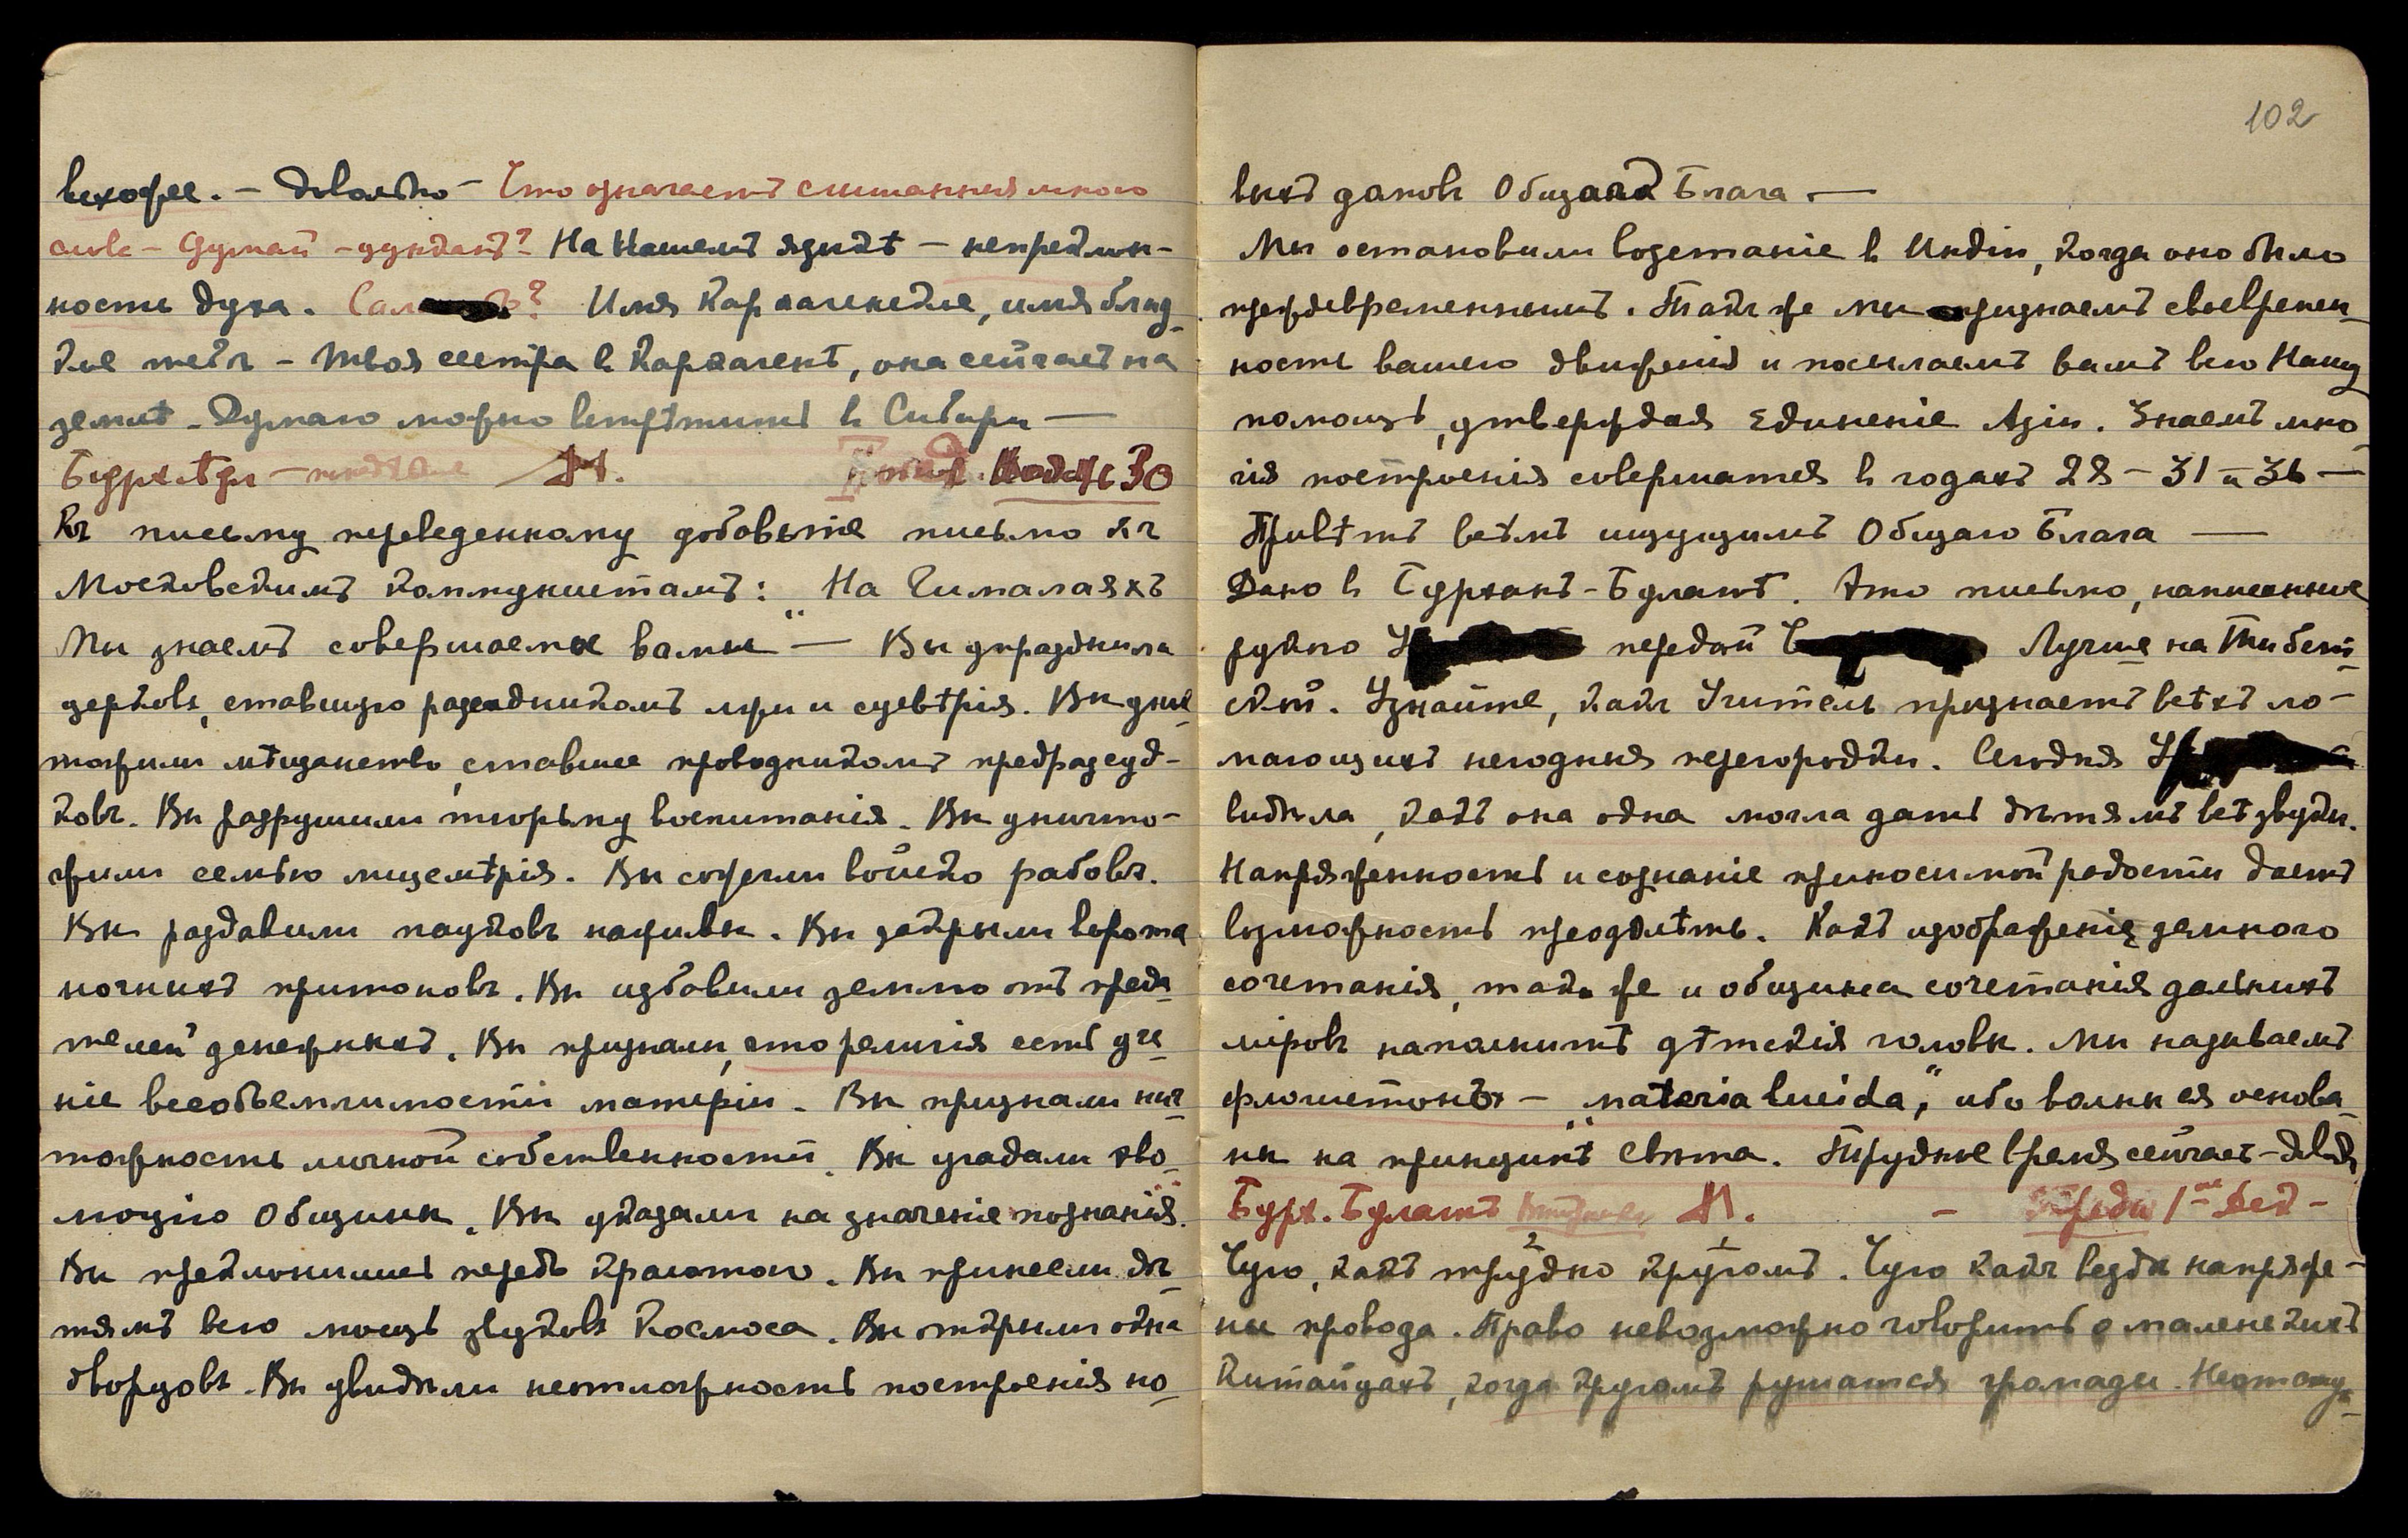 похоже. – довольно – Что означаетъ слышанныя мною
слова – Думай – дукданъ? На Нашемъ языкѣ – непреклон-
ность духа. Имя Карѳагенское, имя близ-
кое тебѣ – Твоя сестра въ Карѳагенѣ, она сейчасъ на
землѣ. Думаю можно встрѣтить въ Сибири —
М. 30
Къ письму переведенному добавьте письмо къ
Московскимъ коммунистамъ: „На Гималаяхъ
Мы знаемъ совершаемое вами" — Вы упразднили
церковь, ставшую разсадникомъ лжи и суевѣрія. Вы унич
тожили мѣщанство, ставшее проводникомъ предразсуд-
ковъ. Вы разрушили тюрьму воспитанія. Вы уничто-
жили семью лицемѣрія. Вы сожгли войско рабовъ.
Вы раздавили пауковъ наживы. Вы закрыли ворота
ночныхъ притоновъ. Вы избавили землю отъ преда
телей денежныхъ. Вы признали, что религія есть уче
ніе всеобъемлимости матеріи. Вы признали нич
тожность личной собственности. Вы угадали эво
люцію Общины. Вы указали на значеніе познанія.
Вы преклонились передъ красотою. Вы принесли дѣ
тямъ всю мощь звуковъ Космоса. Вы открыли окна
дворцовъ. Вы увидѣли неотложность построенія но
102
выхъ домовъ Общаго Блага. —
Мы остановили возстаніе въ Индіи, когда оно было
преждевременнымъ. Также мы признаемъ своевремен
ность вашего движенія и посылаемъ вамъ всю Нашу
помощь, утверждая Единеніе Азіи. Знаемъ мно
гія построенія совершатся въ годахъ 28 – 31 и 36 —
Привѣтъ всѣмъ ищущимъ Общаго Блага —
Дано въ Бурханъ-Булатѣ. Это письмо, написанное
рукою передай Лучше на Тибет
скій. Узнайте, какъ Учитель признаетъ всѣхъ ло-
мающихъ негодныя перегородки. Сегодня
видѣла, какъ она одна могла дать дѣтямъ всѣ звуки.
Напряженность и сознаніе приносимой радости даетъ
возможность преодолѣть. Какъ изображенія земного
сочетанія, также и община сочетанія дальнихъ
міровъ наполнитъ дѣтскія головы. Мы называемъ
– „materia lucida", ибо волны ея основа
ны на принципѣ свѣта. Трудное время сейчасъ – довол
Бурх. Булатъ М. – Среда 1го Дек –
Чую, какъ трудно кругомъ. Чую какъ вездѣ напряже-
ны провода. Право невозможно говорить о маленькихъ
Китайцахъ, когда кругомъ рушатся громады.